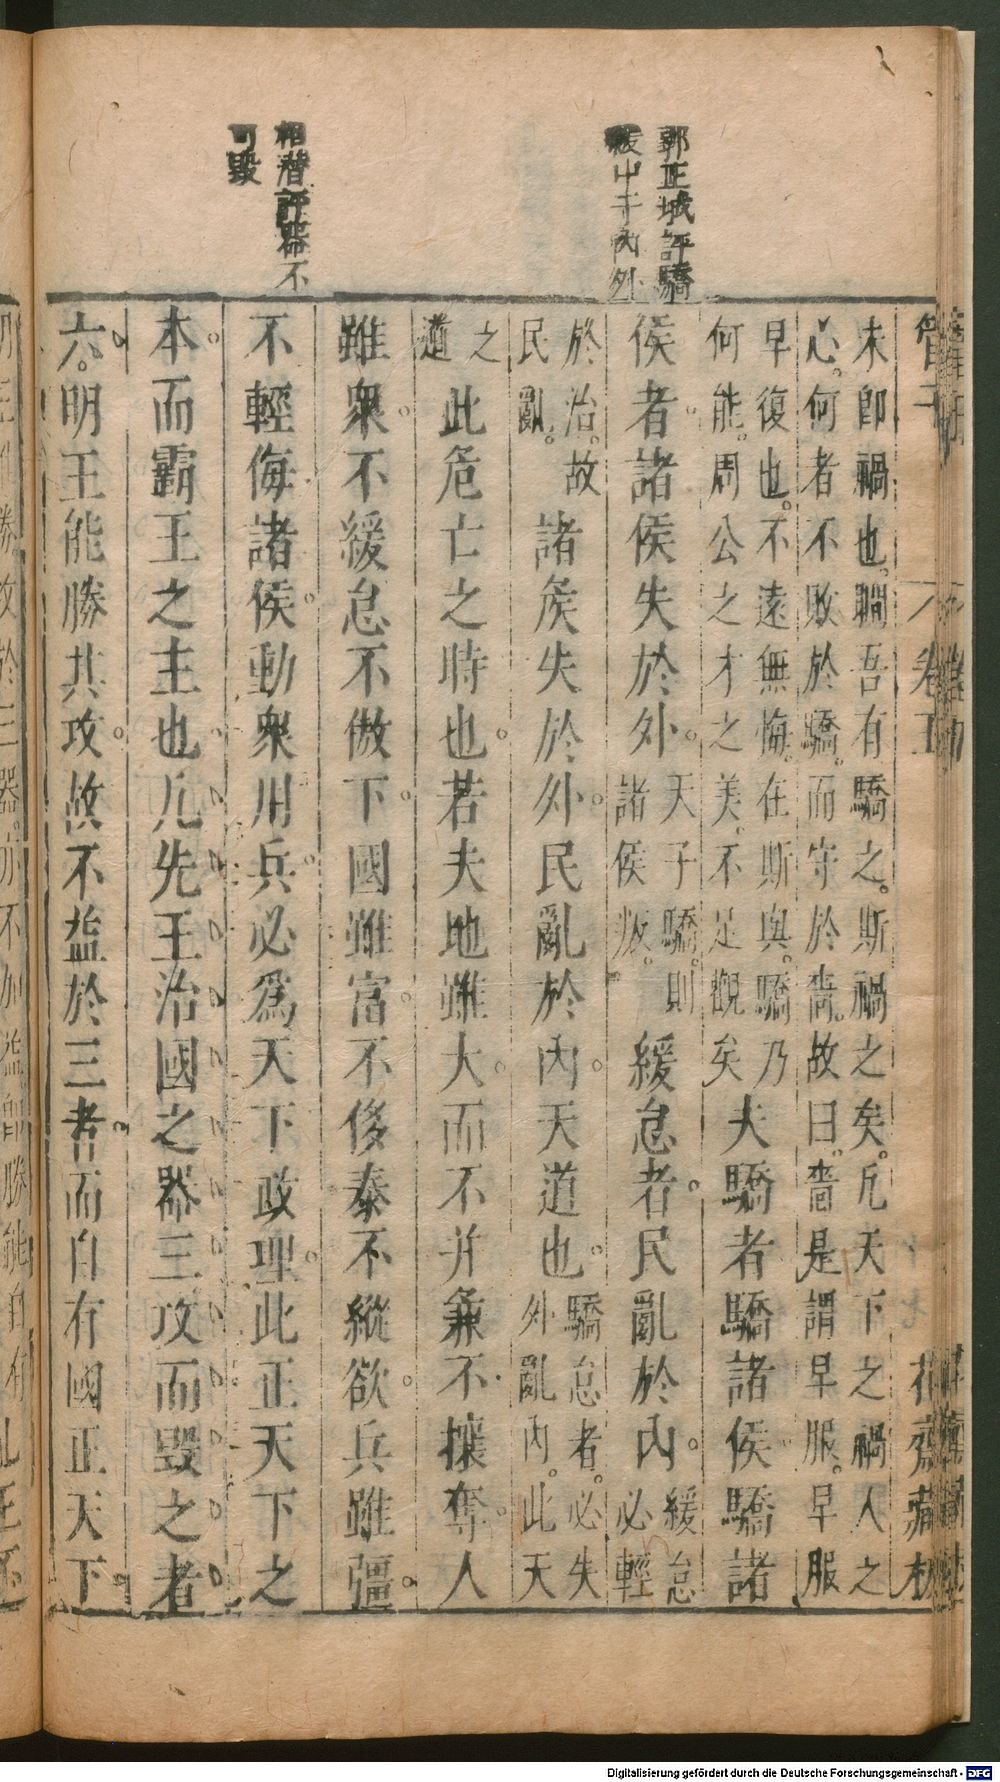 郭正域評驕
緩由于內外
相瓚評器不
可毀
管子
卷五
花齋藏板
未卽禍也瞷吾有驕之斯禍之矣凡天下之禍人之
心何者不敗於驕而守於嗇故曰嗇是謂早服早服
早復也不遠無悔在斯與驕乃
何能周公之才之美不足觀矣
夫驕者驕諸侯驕諸
侯者諸侯失於外
天子驕則
諸侯叛
緩怠者民亂於內
緩怠
必輕
於治故
民亂
諸侯失於外民亂於內天道也
驕怠者必失
外亂內此天
之
道
此危亡之時也若夫地雖大而不并兼不攘奪人
雖衆不緩怠不傲下國雖富不侈泰不縱欲兵雖彊
不輕侮諸侯動衆用兵必爲天下政理此正天下之
本而霸王之主也凡先王治國之器三攻而毀之者
六明王能勝其攻故不益於三者而自有國正天下
Digitalisierung gefördert durch die Deutsche Forschungsgemeinschaft - DFG